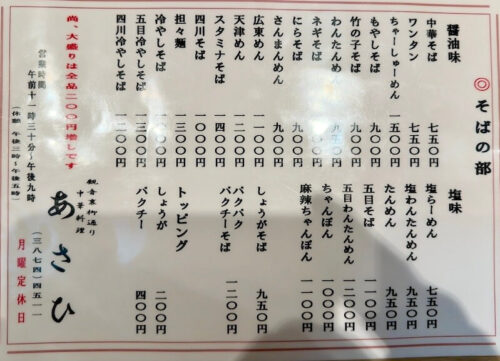 ◎そばの部
醤油味
中華そば 七五〇円
ワンタン 七五〇円
ちゃーしゅーめん 一五〇〇円
もやしそば 九〇〇円
竹の子そば 九〇〇円
わんたんめん 九五〇円
ネギそば
にらそば 九〇〇円
さんまんめん 九〇〇円
広東めん 一一〇〇円
天津めん 一〇〇〇円
スタミナそば 一一〇〇円
四川そば 一〇〇〇円
担々麺 一三〇〇円
冷やしそば 一一〇〇円
五目冷やしそば 一三〇〇円
四川冷やしそば 一二〇〇円
塩味
塩らーめん 七五〇円
塩わんたんめん 九五〇円
たんめん 九五〇円
五目そば 一一〇〇円
五目わんたんめん
ちゃんぽん 一一〇〇円
麻辣ちゃんぽん 一一〇〇円
しょうがそば 九五〇円
パクパク
パクチーそば 一二〇〇円
トッピング
しょうが 二〇〇円
パクチー 四〇〇円
尚、大盛りは全品二〇〇円増しです
営業時間
午前十一時三十分〜午後九時
(休憩 午後三時〜午後五時)
観音裏柳通り
中華料理
あさひ
(三八七四)四五一一
月曜定休日